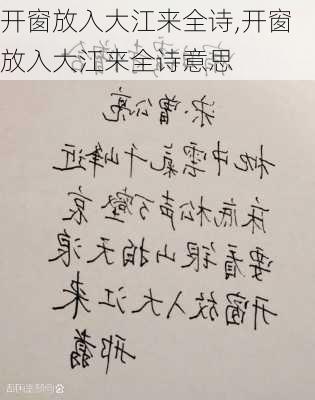 开窗放入大江来全诗,开窗
放入大江来全诗意思
宋·曾公亮
枕中雲氣千峰近
床底松声万壑哀
要看银山拍天浪
开窗放入大江来